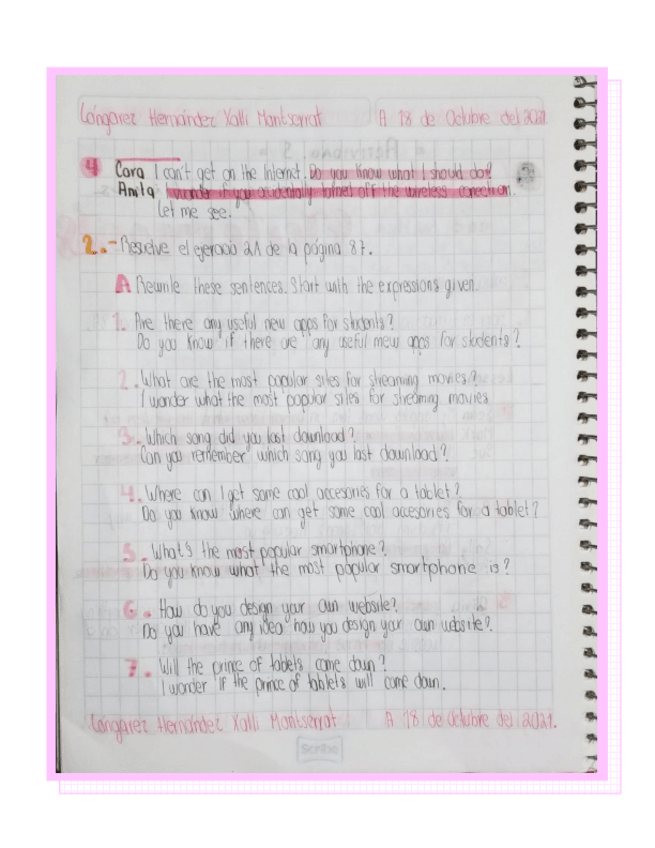 Longarez Hernández Xalli Montserrat A 18 de Octubre del 2021.
4 Cora I can't get on the Internet. Do you know what I should do?
Anita I wonder if you accidentally turned off the wireless conection.
Let me see.
2.- Resuelve el ejercicio 2A de la página 87.
A Rewrite these sentences. Start with the expressions given.
1. Are there any useful new apps for students?
Do you know if there are any useful mew apps for students?
2. What are the most popular sites for streaming movies?
I wonder what the most popular sites for streaming movies
3. Which song did you last download?
Can you remember which song you last download?
4. Where can I get some cool accesories for a tablet?
Do you know where can get some cool accesories for a tablet?
5. What's the most popular smartphone?
Do you know what the most popular smartphone is?
6. How do you design your own website?
Do you have any idea how you design your own website?
7. Will the prince of tablets come down?
I wonder if the prince of tablets will come down.
Longarez Hernández Xalli Montserrat A 18 de Octubre del 2021.
Scribe